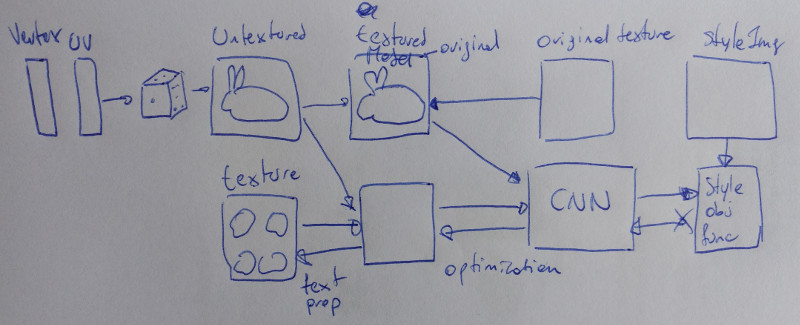 Vertex UV
Untextured
textured
Model
original
Original texture
Style Img
texture
CNN
Style
obj
func
text
prop
optimization